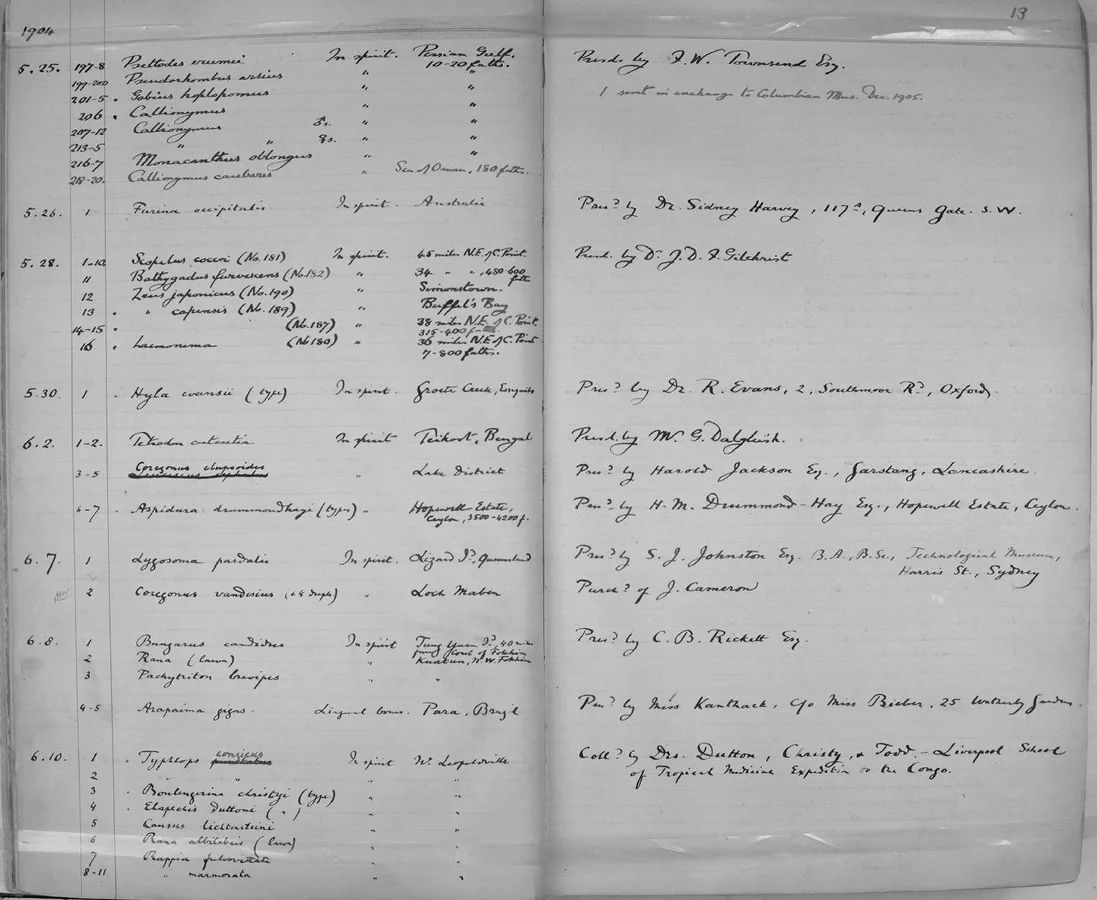 1904
13
5.25. 197-8 Psettodes erumei In spirit. Persian Gulf. 10-20 faths. Presd. by F. W. Townsend Esq.
199-200 Pseudorhombus arsius " "
201-5 Gobius " " 1 sent in exchange to Columbian Mus. Dec. 1905.
206 Callionymus " "
207-12 Callionymus " "
213-5 " " "
216-7 Monacanthus oblongus " "
218-20. Callionymus carebares " Sea of Oman, 180 faths.
5.26. 1 Furina occipitalis In spirit. Australia Presd by Dr. Sidney Harvey, 117a, Queens Gate. S.W.
5.28. 1-10 Scopelus cocoi (No. 181) In spirit. 45 miles N.E. of C. Point. Presd. by Dr J. D. F. Gilchrist
11 Bathygadus (No. 182) " 34 " " , 480-600 faths
12 Zeus japonicus (No. 190) " Simonstown.
13 " capensis (No. 189) " Buffel's Bay
14-15 (No. 187) " 38 miles N.E. of C. Point. 315-400
16 haemonema (No 180) " 36 miles N.E. of C. Point 7-800 faths.
5.30. 1 Hyla evansii (type) In spirit. Groete Creek, Essequibo Presd by Dr. R. Evans, 2, Southmoor Rd, Oxford.
6.2. 1-2. Tetrodon cutcutia In spirit , Bengal Presd. by Mr. G. Dalgleish.
3-5 Coregonus clupeoides " Lake District Presd by Harold Jackson Esq., Garstang, Lancashire.
6-7 Aspidura drummondhayi (types) " Hopewell Estate, Ceylon, 3500-4200 f. Presd by H. M. Drummond-Hay Esq., Hopewell Estate, Ceylon.
6.7. 1 Lygosoma pardalis In spirit. Lizard Id, Queensland Presd by S. J. Johnston Esq. B.A., B.Sc., Technological Museum,
Harris St., Sydney
2 Coregonus vandesius " Loch Maben Purchd of J. Cameron
6.8. 1 Bungarus candidus In spirit 40 miles coast of Fokhien Presd by C. B. Rickett Esq.
2 Rana (larva) " Kuatun, N.W. Fokhien
3 Pachytriton brevipes " "
4-5 Arapaima gigas. Lingual bones. Para, Brazil Presd by Miss Kanthack, c/o Miss Bieber, 25 Wetherby Gardens
6.10. 1 Typhlops congicus punctatus In spirit Nr. Leopoldville Colld by Drs. Dutton, Christy, & Todd - Liverpool School
of Tropical Medicine Expedition to the Congo.
2 " " " "
3 Boulengerina christyi (type) " "
4 Elapechis Duttoni ( " ) " "
5 Causus lichtensteini " "
6 Rana albilabris (larva) " "
7 Rappia fulvovittata " "
8-11 " marmorata " "